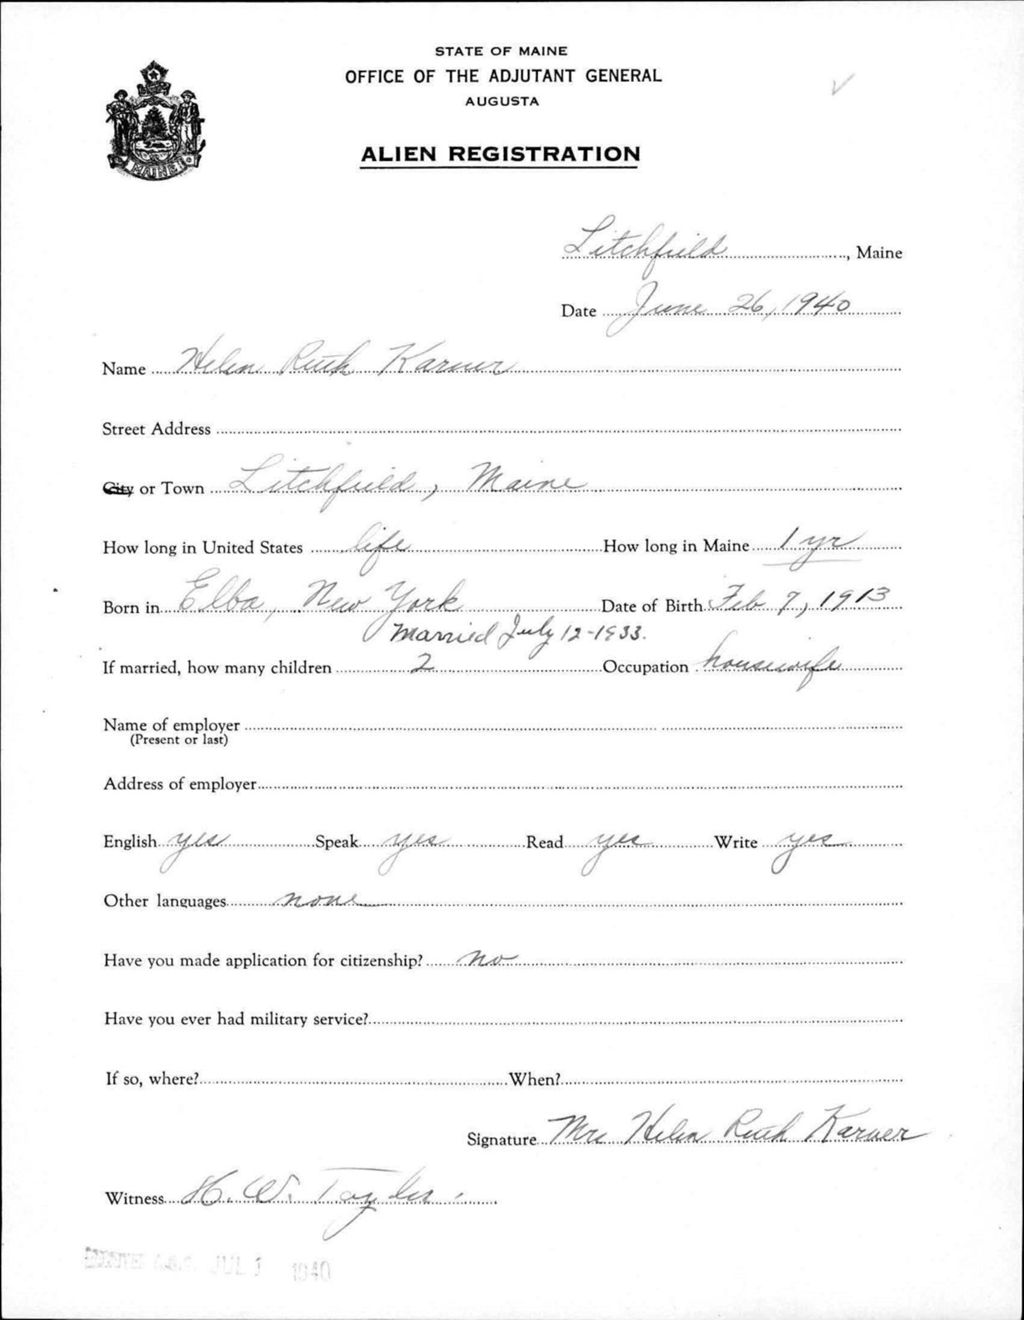 STATE OF MAINE
OFFICE OF THE ADJUTANT GENERAL
AUGUSTA
ALIEN REGISTRATION
MAINE
Litchfield, Maine
Date June 26, 1940
Name Helen Ruth Karner
Street Address
City or Town Litchfield, Maine
How long in United States life How long in Maine 1 yr
Born in Elba, New York Date of Birth Feb 7, 1913
Married July 12-1933.
If married, how many children 2 Occupation housewife
Name of employer
(Present or last)
Address of employer
English yes Speak yes Read yes Write yes
Other languages none
Have you made application for citizenship? No
Have you ever had military service?
If so, where? When?
Signature Mrs Helen Ruth Karner
Witness H. W. Taylor
JUL 1 1940